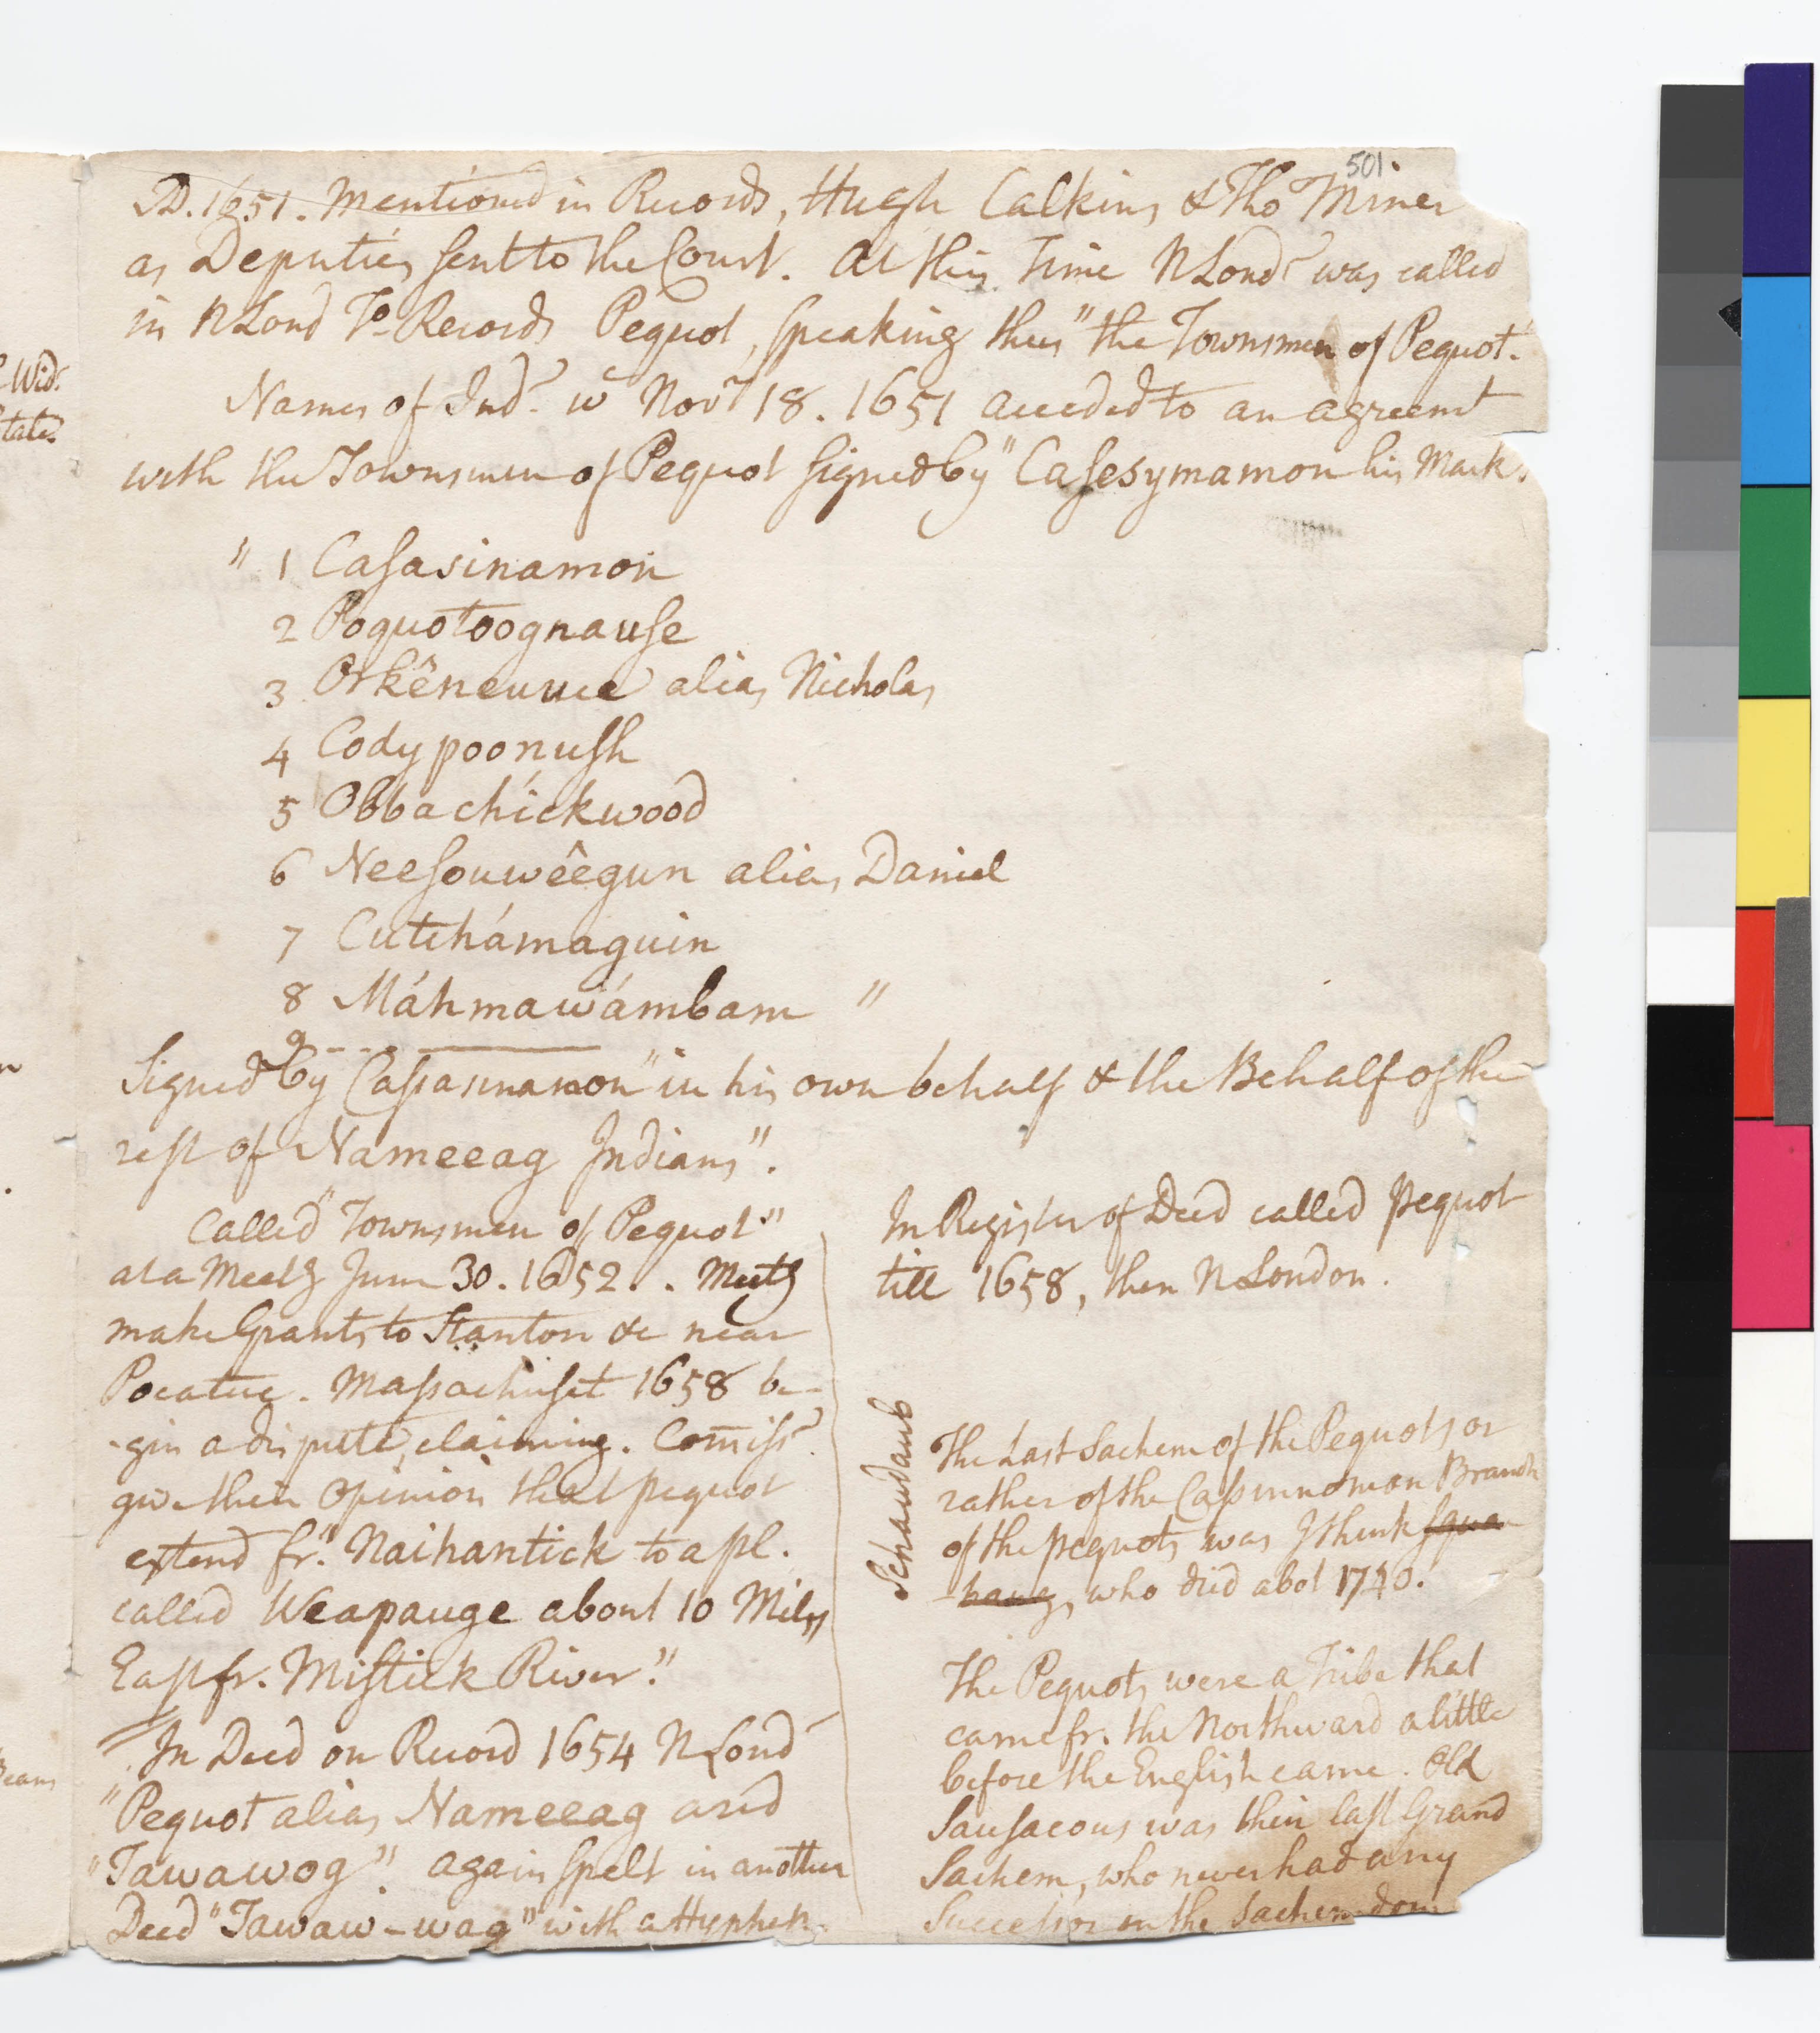 501
AD. 1651. Mentioned in Records, Hugh Calkins & Tho Miner
as Deputies sent to the Court. At this Time NLondo was called
in NLond To Records Pequot, speaking thus "the Townsmen of Pequot.
Names of Inds. wc Novr 18. 1651 acceded to an agreemt
with the Townsmen of Pequot signed by "Casesymamon his Mark.
" 1 Casasinamon
2 Poquotoognause
3 Orkêneunue alias Nicholas
4 Codypoonush
5 Obbachíckwood
6 Neesouwêegun alias Daniel
7 Cutchámaguin
8 Máhmawámbam "
9 - - -
Signed by Cassasinnamon "in his own behalf & the Behalf of the
rest of Nameeag Indians".
Called "Townsmen of Pequot"
at a Meetg June 30. 1652. . Meetg
make Grants to Stanton &c near
Pocatuc. Massachuset 1658 be-
-gin a dispute, claiming. Comissr.
give their Opinion that pequot
extend fr. "Naihantick to a pl.
called Weapauge about 10 Miles
East fr. Mistick River."
In Deed on Record 1654 NLond
"Pequot alias Nameeag and
"Tawawog". again spelt in another
Deed "Tawaw-wag" with a Hyphen.
In Register of Deed called pequot
till 1658, then NLondon.
Schaudaub
The Last Sachem of the Pequots or
rather of the Cassinnomon Branch
of the pequots was I think Squa
-baug, who died abot 1740.
The Pequots were a Tribe that
came fr. the Northward a little
before the English came. Old
Sausacous was their last Grand
Sachem, who never had any
Successor in the Sachemdom
Wid.
state.
Beans